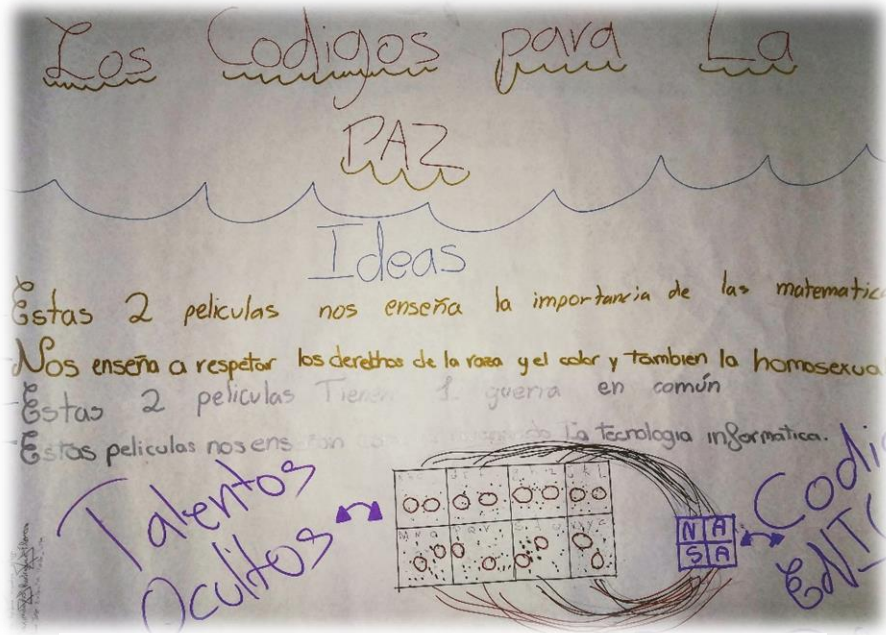 Los Codigos para La
PAZ
Ideas
Estas 2 peliculas nos enseña la importancia de las matematic
Nos enseña a respetar los derethos de la raza y el color y tambien la homosexua
Estas 2 peliculas Tienen 1 guerra en común
Estas peliculas nos ens la tecnologia informatica.
Talentos
Oculitos
N A
S A
Codi
ENI